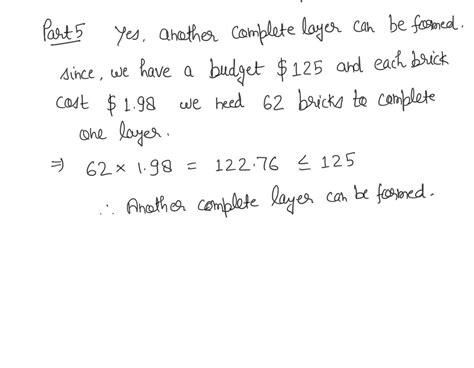 Part 5 Yes, another complete layer can be formed.
since, we have a budget $125 and each brick
cost $1.98 we need 62 bricks to complete
one layer.
⇒ 62 × 1.98 = 122.76 ≤ 125
∴ Another complete layer can be formed.